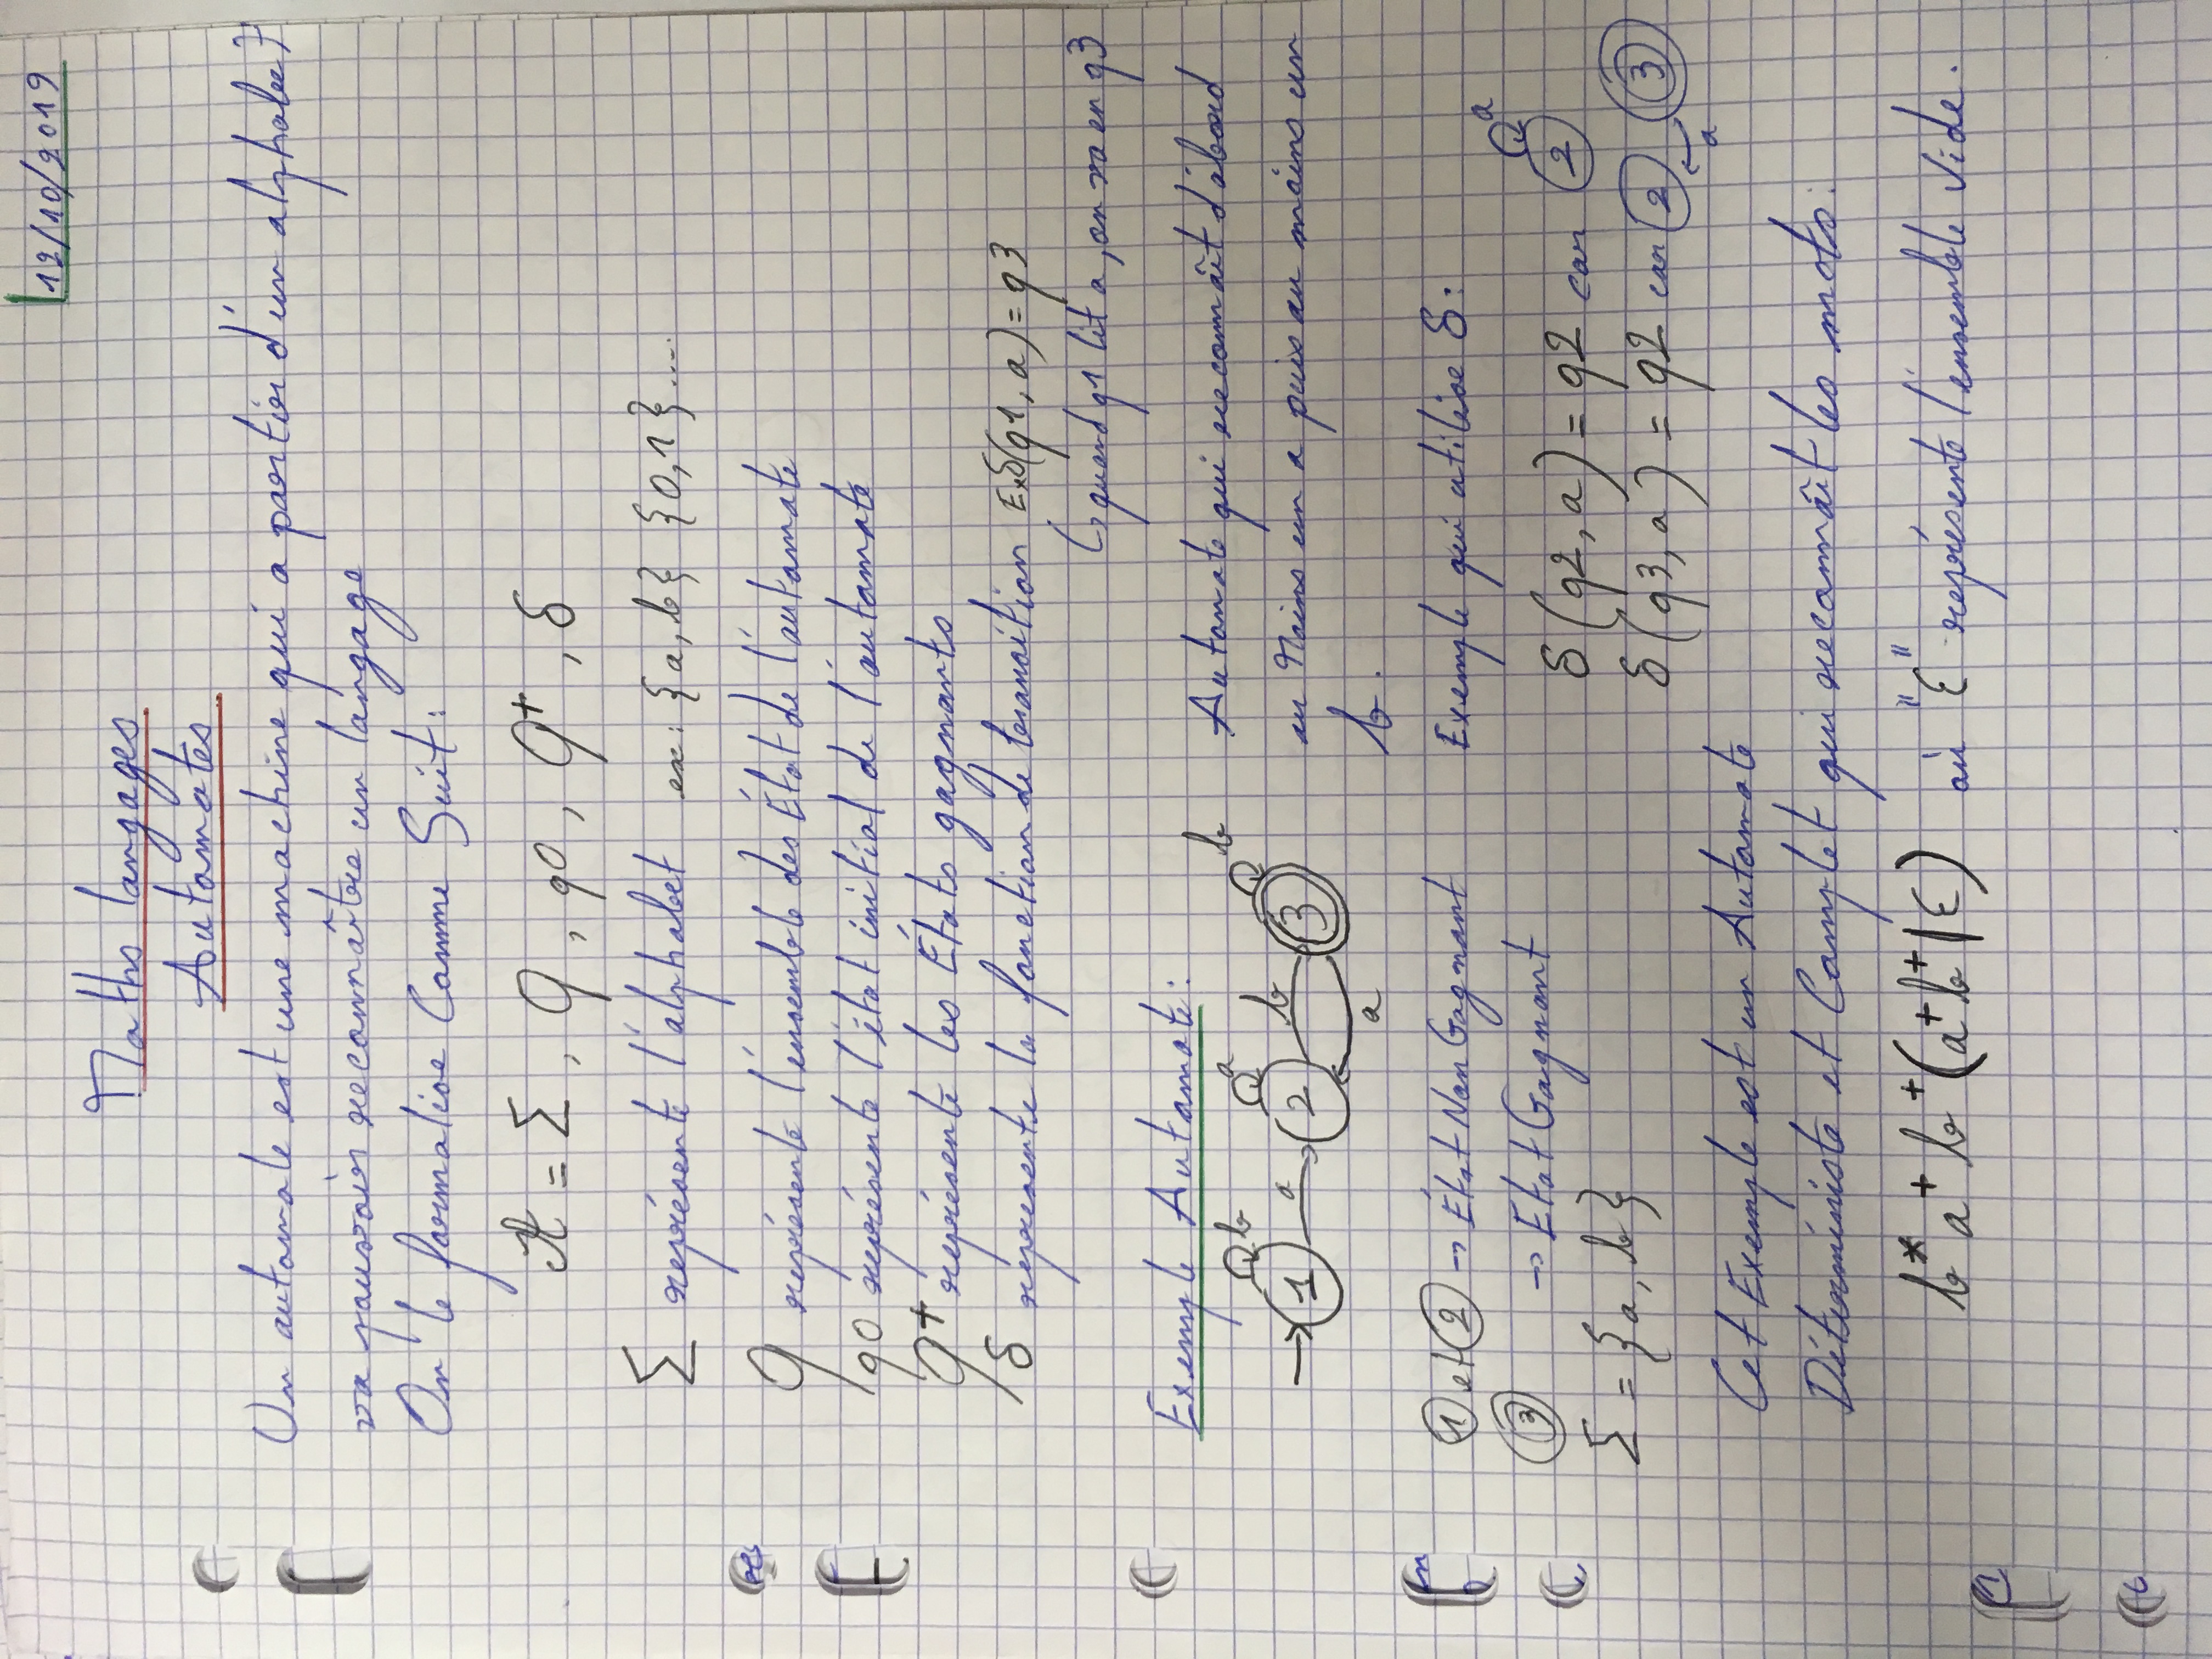 12/10/2019
Maths langages
Automates
Un automate est une machine qui a partir d'un alphabet
va pouvoir reconnaître un langage
On le formalise Comme Suit :
A = Σ, Q, q0, Q+, δ
Σ représente l'alphabet ex : {a, b} {0,1}....
Q représente l'ensemble des État de l'automate
q0 représente l'état initial de l'automate
Q+ représente les États gagnants
δ represente la fonction de transition Ex δ(q1, a) = q3
↳ quand q1 lit a, on va en q3
Exemple Automate :
b a b
1 a 2 b 3
a
Automate qui reconnaît d'abord
au Moins un a puis au moins un
b.
1 et 2 → État Non Gagnant
3 → Etat Gagnant
Σ = {a, b}
Exemple qui utilise δ :
a
δ(q2, a) = q2 car 2
δ(q3, a) = q2 car 2 3
a
Cet Exemple est un Automate
Déterministe et Complet qui reconnaît les mots :
b* a+ b+ (a+ b+ | ε) où "ε" représente l'ensemble vide.